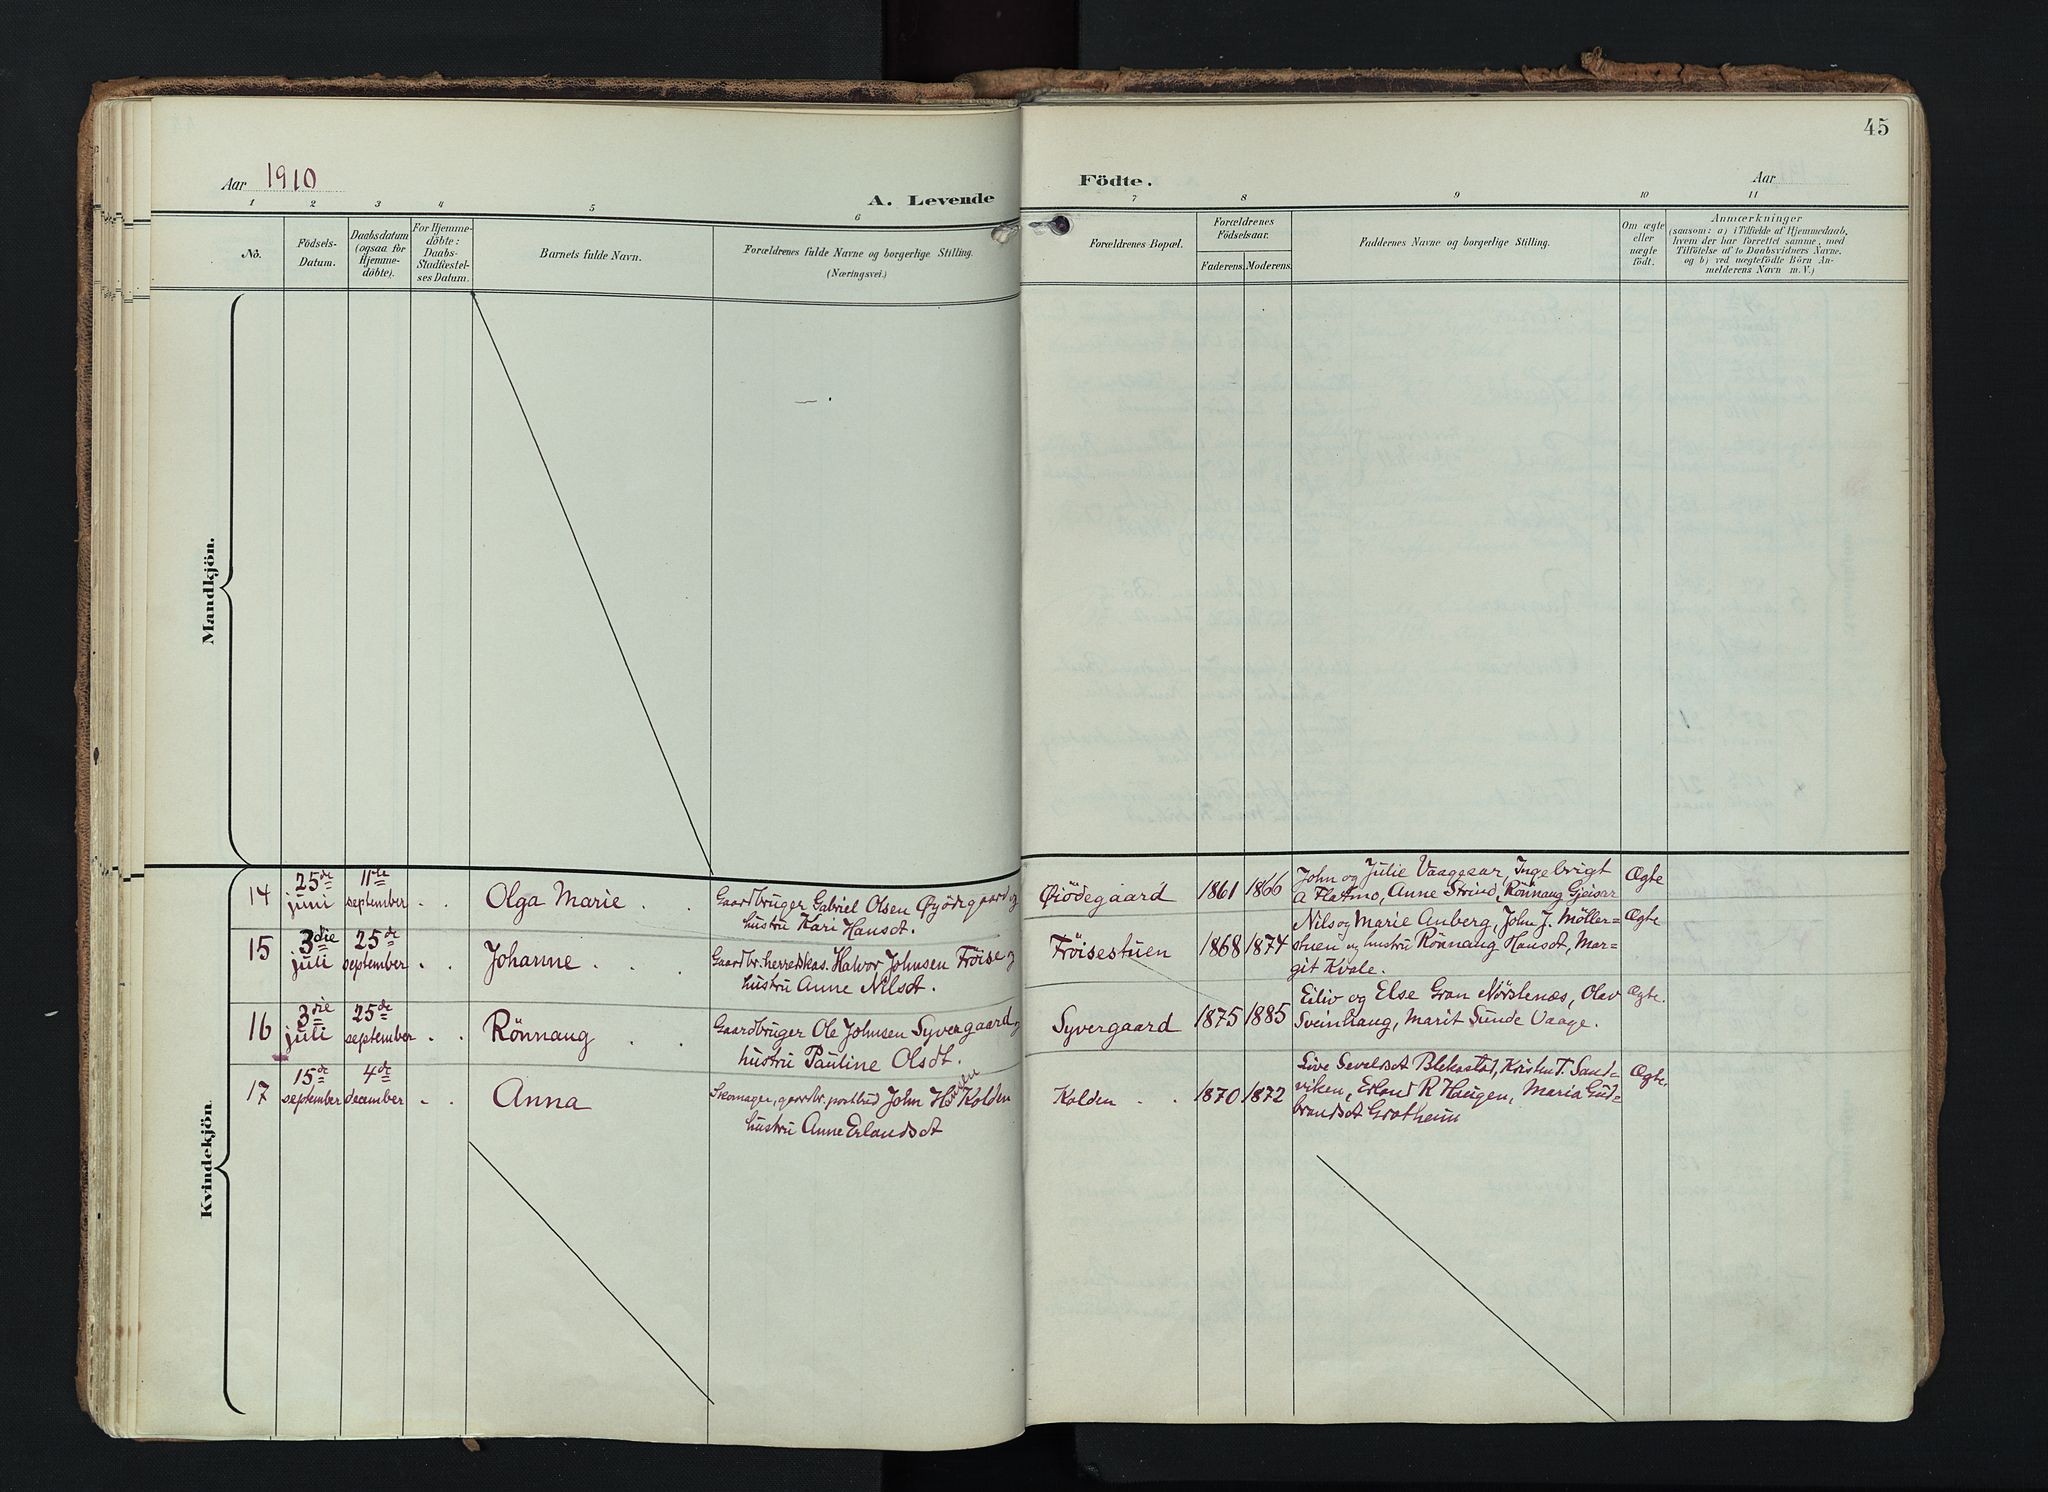 45
Aar 1910
A. Levende
Födte.
Aar
1 2 3 4 5 6 7 8 9 10 11
No.
Födsels-
Datum.
Daabsdatum
(ogsaa for
Hjemme-
döbte).
For Hjemme-
döbte:
Daabs-
Stadfæstel-
ses Datum.
Barnets fulde Navn.
Forældrenes fulde Navne og borgerlige Stilling.
(Næringsvei.)
Forældrenes Bopæl.
Forældrenes
Födselsaar.
Faderens. Moderens.
Faddernes Navne og borgerlige Stilling.
Om ægte
eller
uægte
födt.
Anmærkninger
(saasom: a) i Tilfælde af Hjemmedaab,
hvem der har forrettet samme, med
Tilföielse af to Daabsvidners Navne,
og b) ved uægtefödte Börn An-
melderens Navn m. V.)
Mandkjön.
Kvindekjön.
14
25de
juni
11te
september
Olga Marie
Gaardbruger Gabriel Olsen
hustru Kari Hansdt.
Öiödegaard
1861 1866
John og Julie Vaagesar, Ingebrigt
A Flatmo, Anne Strind, Rönnaug Gjeisar
Ægte
15
3die
juli
25de
september
Johanne
Gaardbr. herredskas. Halvor Johnsen Fröise og
hustru Anne Nilsdt.
Fröisestuen
1868 1874
Nils og Marie Auberg, John J. Möller-
stuen og hustru Rönnaug Hansdt, Mar-
git Kvale.
Ægte
16
3die
juli
25de
september
Rönnaug
Gaardbruger Ole Johnsen Syvergaard og
hustru Pauline Olsdt.
Syvergaard
1875 1885
Eiliv og Else Gran Nörstenæs, Olav
Sveinhaug, Marit Sunde Vaage.
Ægte.
17
15de
september
4de
december
Anna
Skomager, gaardbr. postbud John Kolden
hustru Anne Erlandsdt
Kolden
1870 1872
Live Blekastad, Kristen T. Sand-
viken, Erland R Haugen, Maria Gud-
brandsdt Grotheim
Ægte.